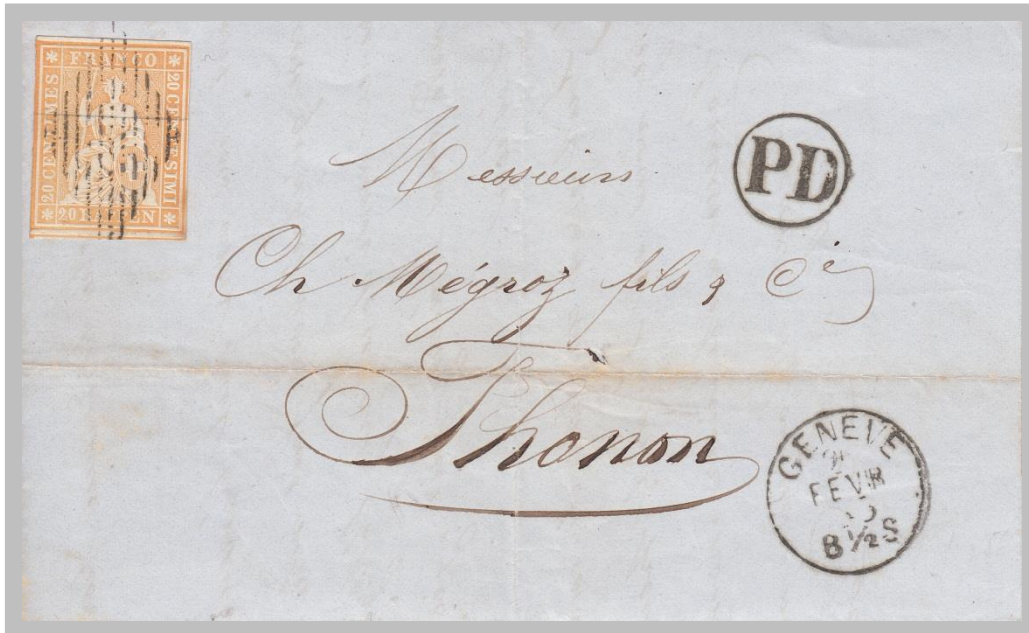 FRANCO
20 CENTIMES
20 CENTESIMI
20 RAPPEN
PD
Messieurs
Ch Mégroz fils & Cie
Thonon
GENEVE
FEVR
8 1/2 S